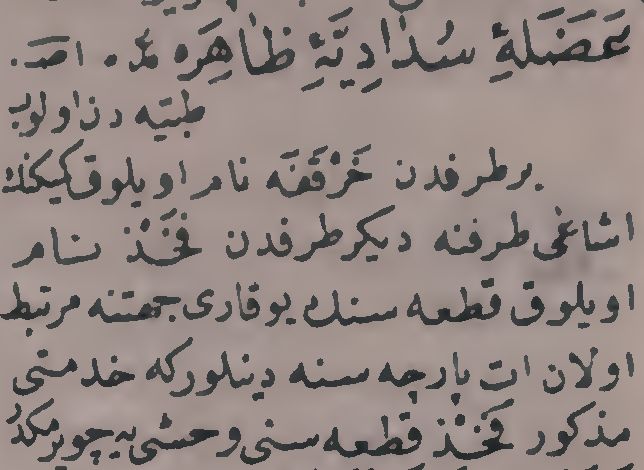 عَضَلَهِٔ سُدَادِيَّهِٔ ظَاهِرَه مذ. اصـ.
طبيه دن اولوب
برطرفدن حَرْقَفَه نام اويلوق كيكنك
اشاغى طرفنه ديكر طرفدن فَخَذْ نام
اويلوق قطعه سنك يوقارى جهتنه مرتبط
اولان ات پارچه سنه دينلوركه خدمتى
مذكور فَخَذْ قطعه سنى وحشى يه چويرمكدر